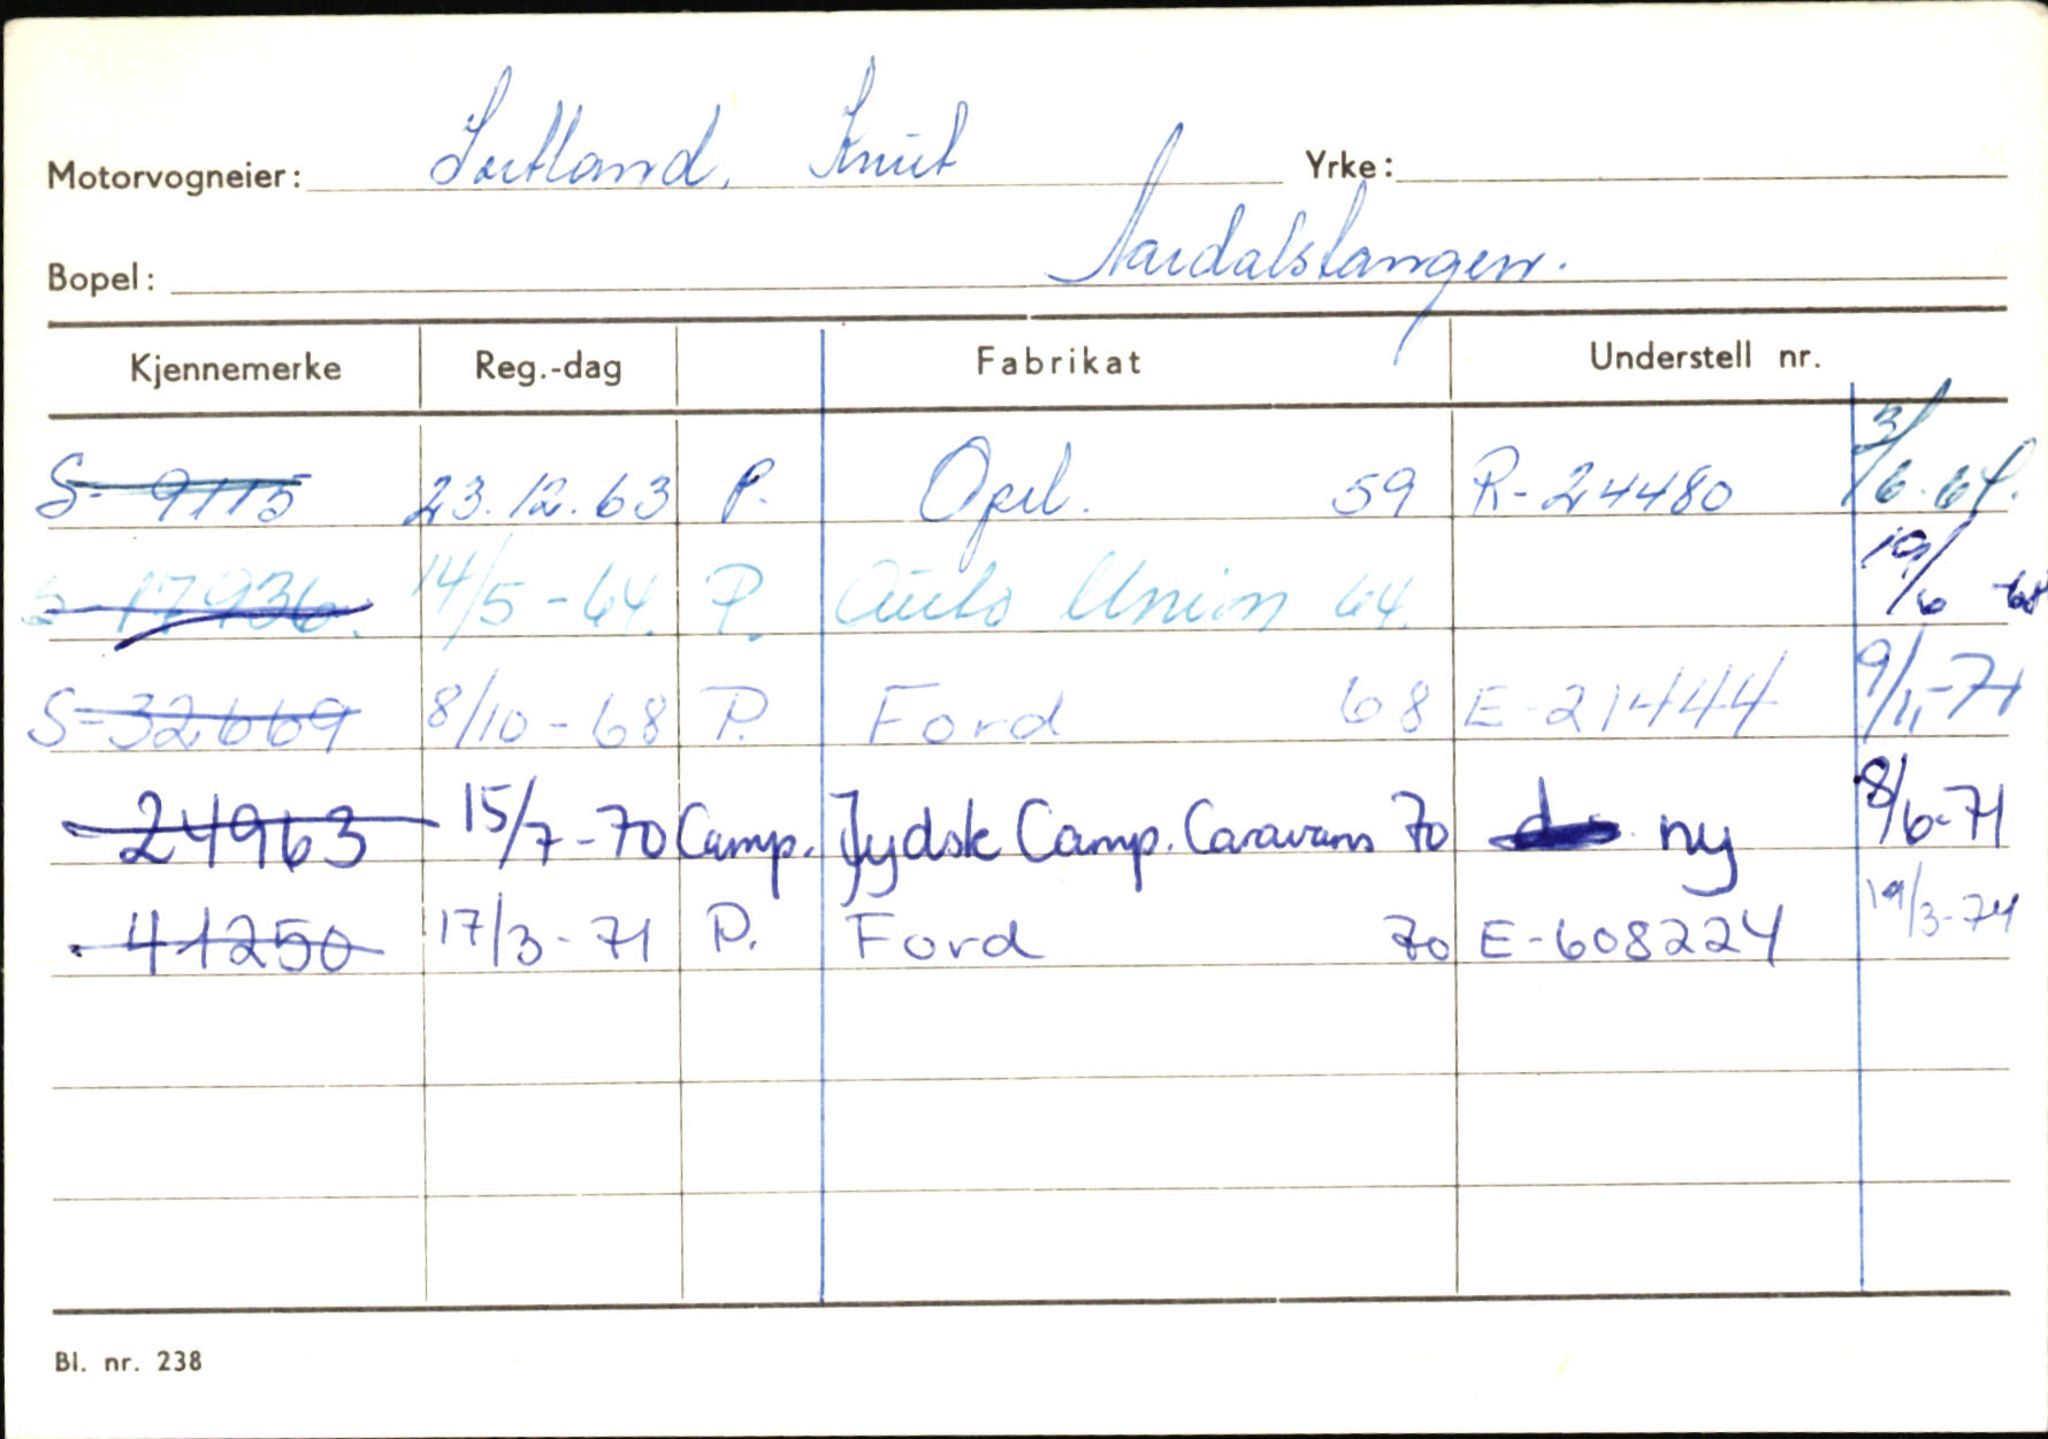 Motorvogneier: Sortland, Knut Yrke:
Bopel: Aardalstangen.
Kjennemerke Reg.-dag Fabrikat Understell nr.
S- 9115 23.12.63 P. Opel. 59 R-24480 3/6.64.
S-17936. 14/5-64. P. Auto Union 64. 19/6 -68
S-32669 8/10-68 P. Ford 68 E-21444 9/11-71
24963 15/7-70 Camp. Jydsk Camp. Caravans 70 ny 8/6-71
41250 17/3-71 P. Ford 70 E-608224 19/3-74
Bl. nr. 238